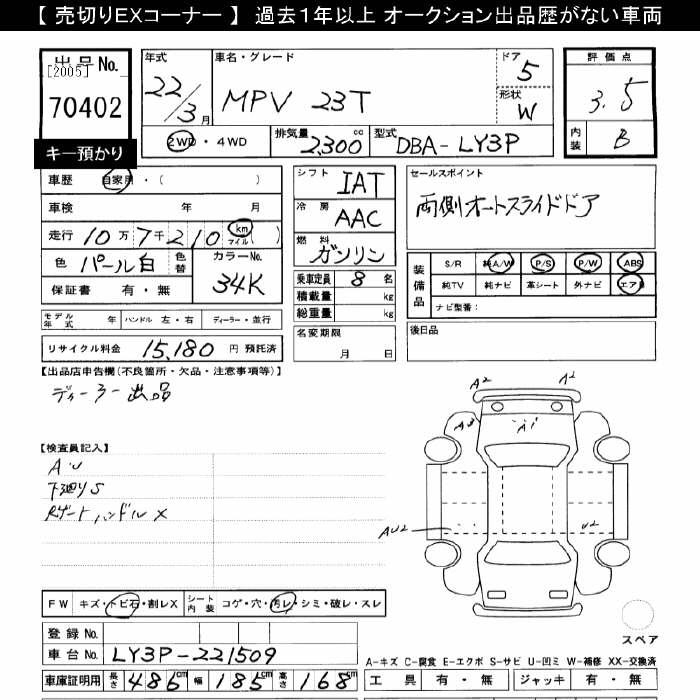 【 売切りEXコーナー 】 過去１年以上 オークション出品歴がない車両
出品No.
[2005]
70402
キー預かり
年式 22/3月
車名・グレード MPV 23T
ドア 5
形状 W
2WD・4WD
排気量 2,300 cc
型式 DBA-LY3P
評価点 3.5
内装 B
車歴 自家用・( )
車検 年 月
走行 10万7千210 km マイル ( )
色 パール白 色替 カラーNo. 34K
保証書 有・無
シフト IAT
冷房 AAC
燃料 ガソリン
乗車定員 8名
積載量 kg
総重量 kg
名変期限 月 日
セールスポイント
両側オートスライドドア
装備品
S/R 純A/W P/S P/W ABS
純TV 純ナビ 革シート 外ナビ エアB
ナビ型番：
後日品
モデル年式 年 ハンドル 左・右 ディーラー・並行
リサイクル料金 15,180 円 預託済
【出品店申告欄(不良箇所・欠品・注意事項等)】
ディーラー出品
【検査員記入】
AU
下廻りS
Rゲートハンドル X
A2 A1
A3 A1
AU2 U2
FW キズ・トビ石・割レX シート内装 コゲ・穴・汚レ・シミ・破レ・スレ
登録No.
車台No. LY3P-221509
車庫証明用 長さ 486cm 幅 185cm 高さ 168cm
スペア
A-キズ C-腐食 E-エクボ S-サビ U-凹ミ W-補修 XX-交換済
工具 有・無 ジャッキ 有・無